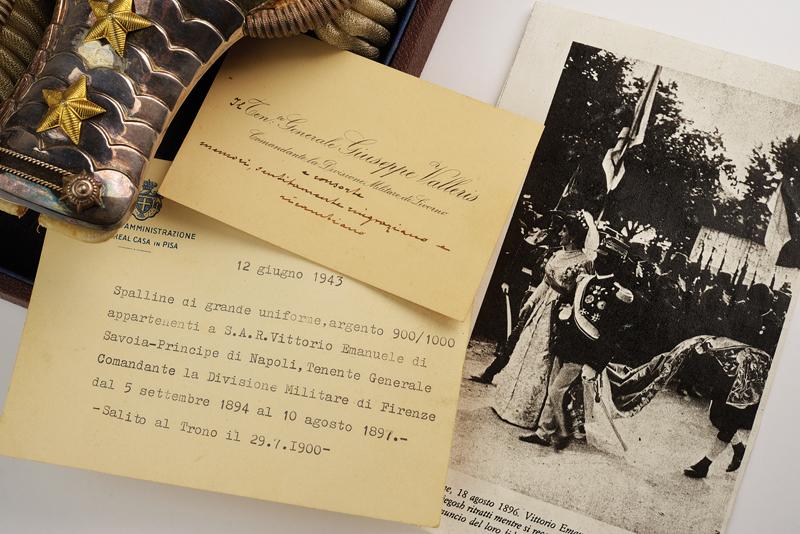 Il Ten.te Generale Giuseppe Valleris
Comandante la Divisione Militare di Livorno
e consorte
memori, sentitamente ringraziano e
ricambiano
AMMINISTRAZIONE
REAL CASA IN PISA
12 giugno 1943
Spalline di grande uniforme,argento 900/1000
appartenenti a S.A.R.Vittorio Emanuele di
Savoia-Principe di Napoli,Tenente Generale
Comandante la Divisione Militare di Firenze
dal 5 settembre 1894 al 10 agosto 1897.-
-Salito al Trono il 29.7.1900-
ne, 18 agosto 1896. Vittorio Emanu
egosh ritratti mentre si rec
nuncio del loro